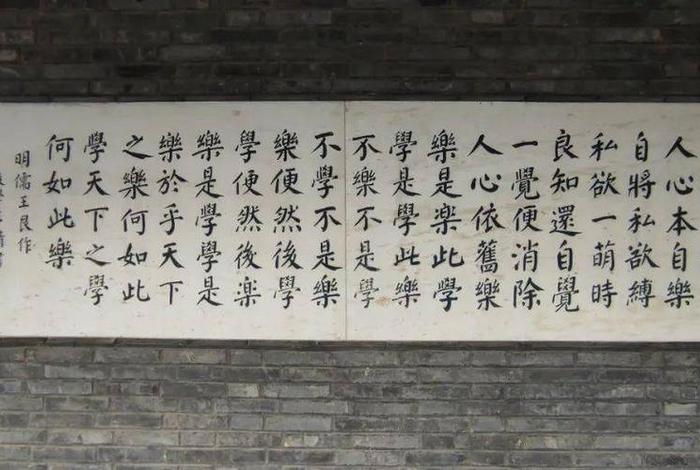 人心本自樂
自將私欲縛
私欲一萌時
良知還自覺
一覺便消除
人心依舊樂
樂是楽此學
學是學此樂
不樂不是學
不學不是樂
樂便然後學
學便然後楽
樂是學學是
樂於乎天下
之樂何如此
學天下之學
何如此樂
明儒王艮作